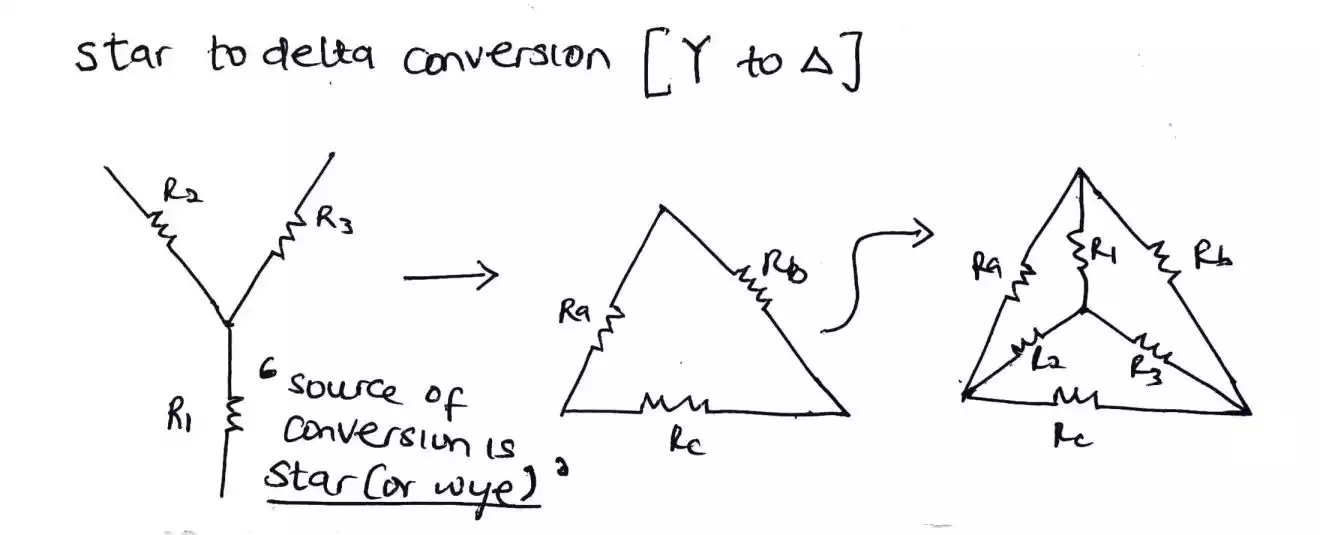 star to delta conversion [Y to Δ]
R2
R3
R1
"source of
conversion is
star (or wye)"
Ra
Rb
Rc
Ra
R1
Rb
R2
R3
Rc